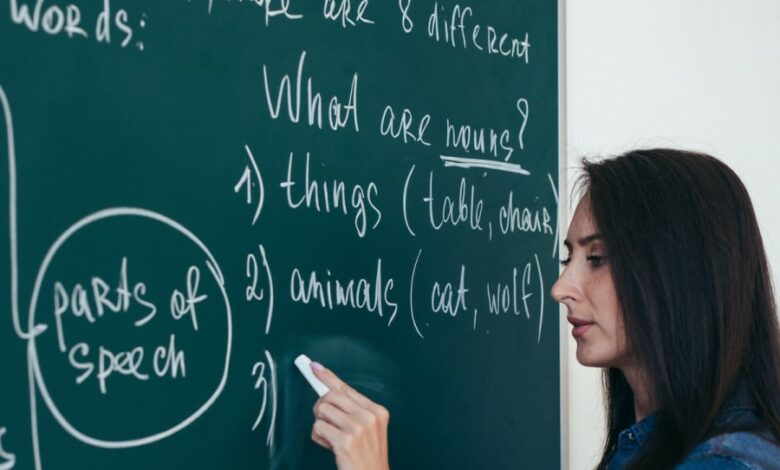 WORDS:
there are 8 different
What are nouns?
1) things (table, chair)
2) animals (cat, wolf)
3)
parts of
speech